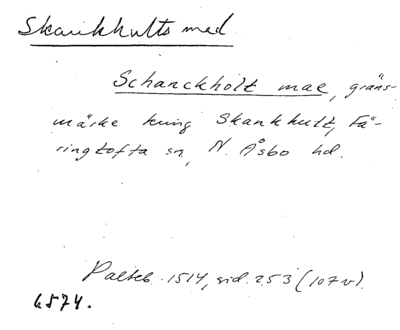 Skankhults mad
Schanckholt mae, gräns-
märke kring Skankhult, Fä-
ringtofta sn, N. Åsbo hd.
Palteb. 1514, sid. 253 (107v).
6574.